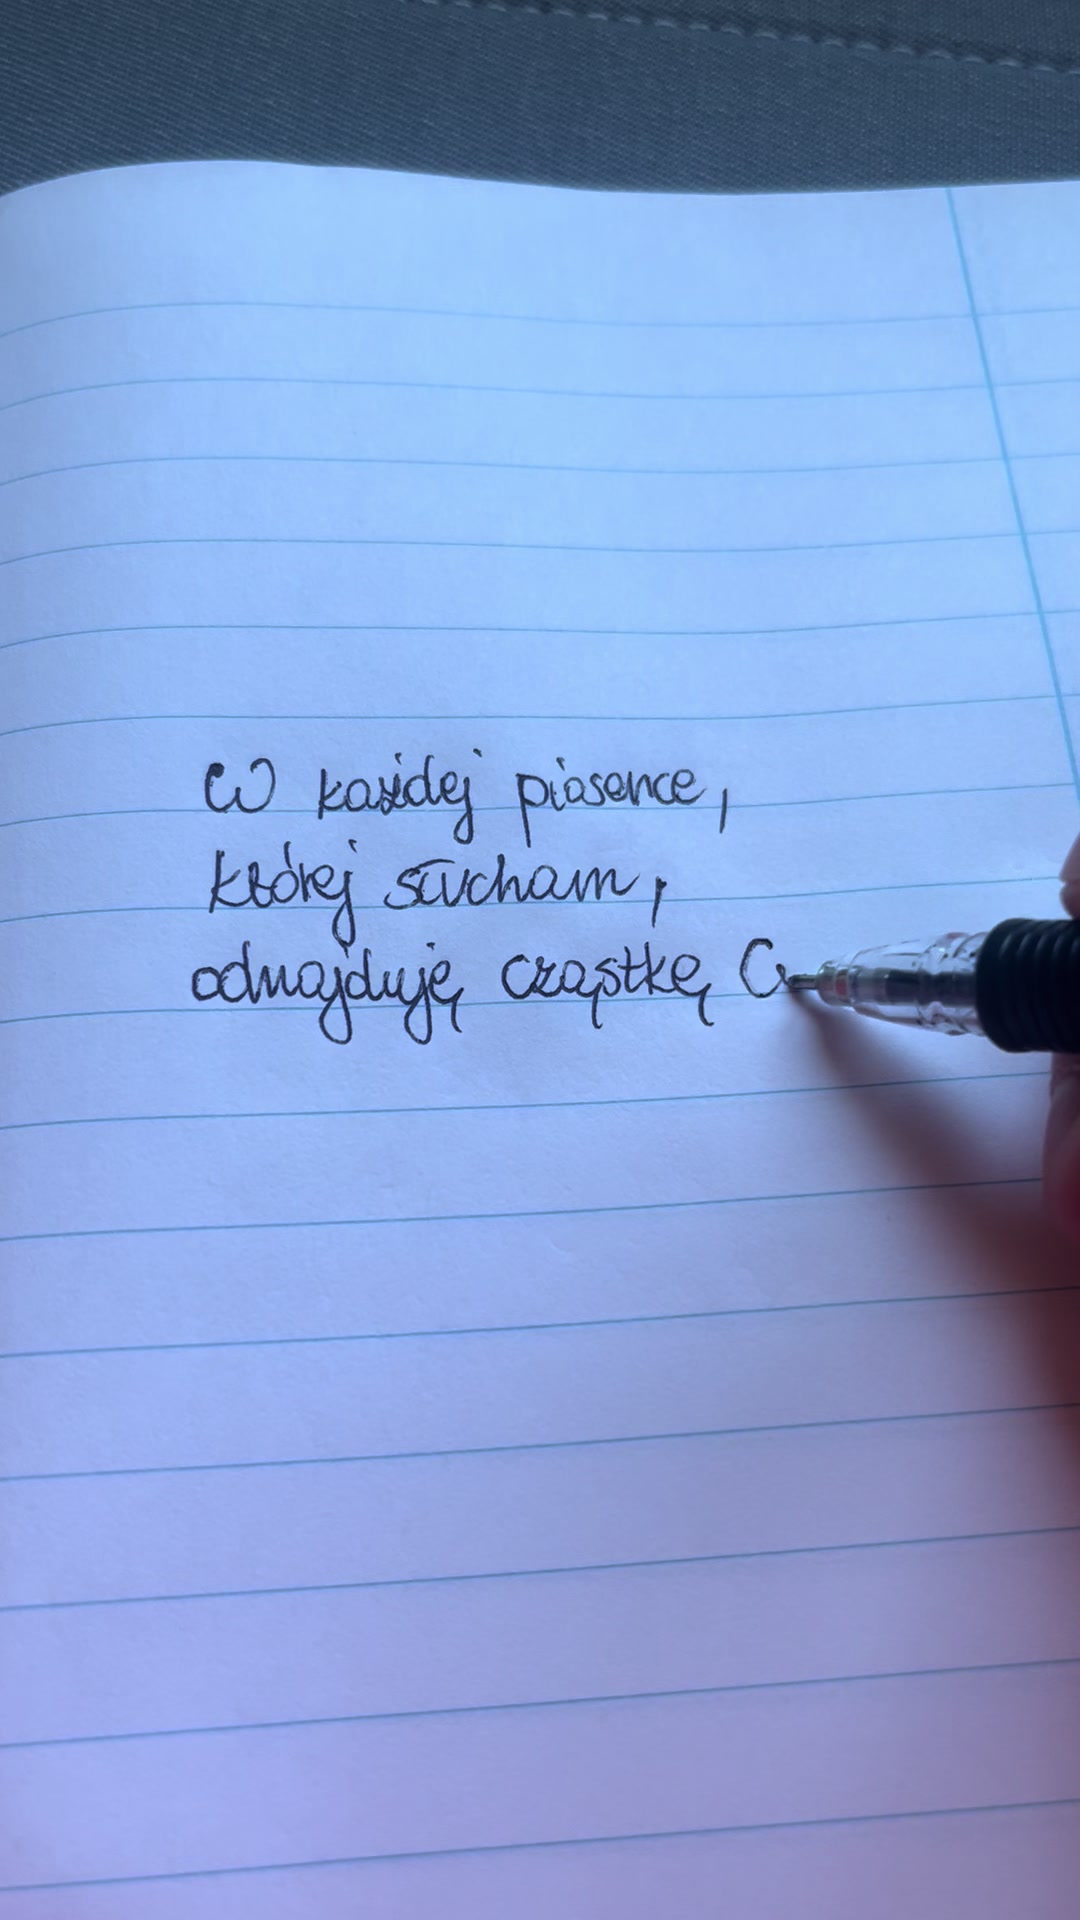 W każdej piosence,
której słucham,
odnajduję cząstkę